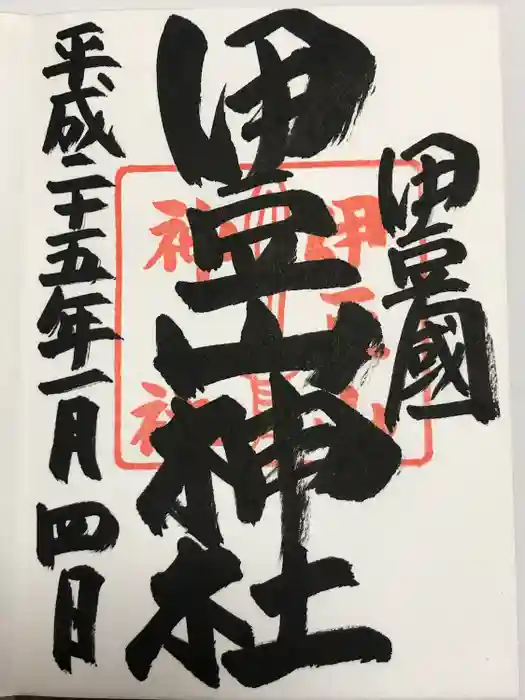 伊豆國
伊豆山神社
平成二十五年一月四日